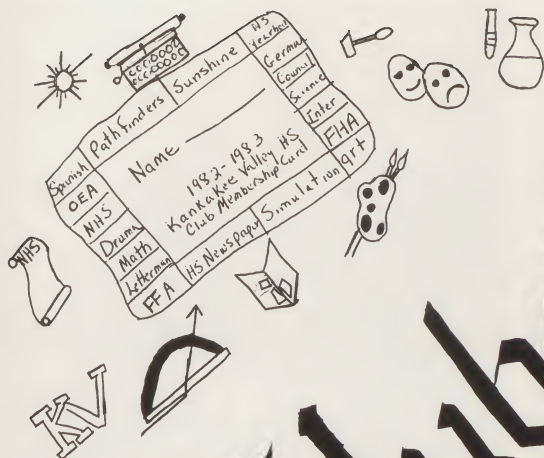 Pathfinders
Sunshine
HS Yearbook
German
Council
Science
Inter
FHA
Art
Simulation
HS Newspaper
FFA
Letterman
Math
Drama
NHS
OEA
Spanish
Name
1982-1983
KanKaKee Valley HS
Club Membership Card
NHS
KV